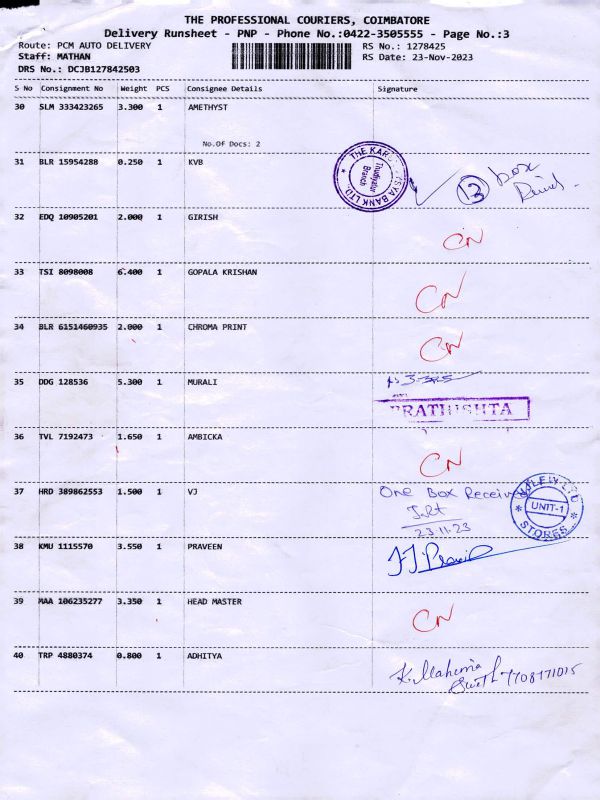 THE PROFESSIONAL COURIERS, COIMBATORE
Delivery Runsheet - PNP - Phone No.:0422-3505555 - Page No.:3
Route: PCM AUTO DELIVERY RS No.: 1278425
Staff: MATHAN RS Date: 23-Nov-2023
DRS No.: DCJB127842503
S No Consignment No Weight PCS Consignee Details Signature
30 SLM 333423265 3.300 1 AMETHYST
No.Of Docs: 2
31 BLR 15954288 0.250 1 KVB
THE KARUR VYSYA BANK LTD.
Branch
13 box
32 EDQ 10905201 2.000 1 GIRISH CN
33 TSI 8098008 6.400 1 GOPALA KRISHAN CN
34 BLR 6151460935 2.000 1 CHROMA PRINT CN
35 DDG 128536 5.300 1 MURALI
PRATHISHTA
36 TVL 7192473 1.650 1 AMBICKA CN
37 HRD 389862553 1.500 1 VJ One Box Received
UNIT-1
STORES
23.11.23
38 KMU 1115570 3.550 1 PRAVEEN
39 MAA 106235277 3.350 1 HEAD MASTER CN
40 TRP 4880374 0.800 1 ADHITYA K. Mahema
7708171015